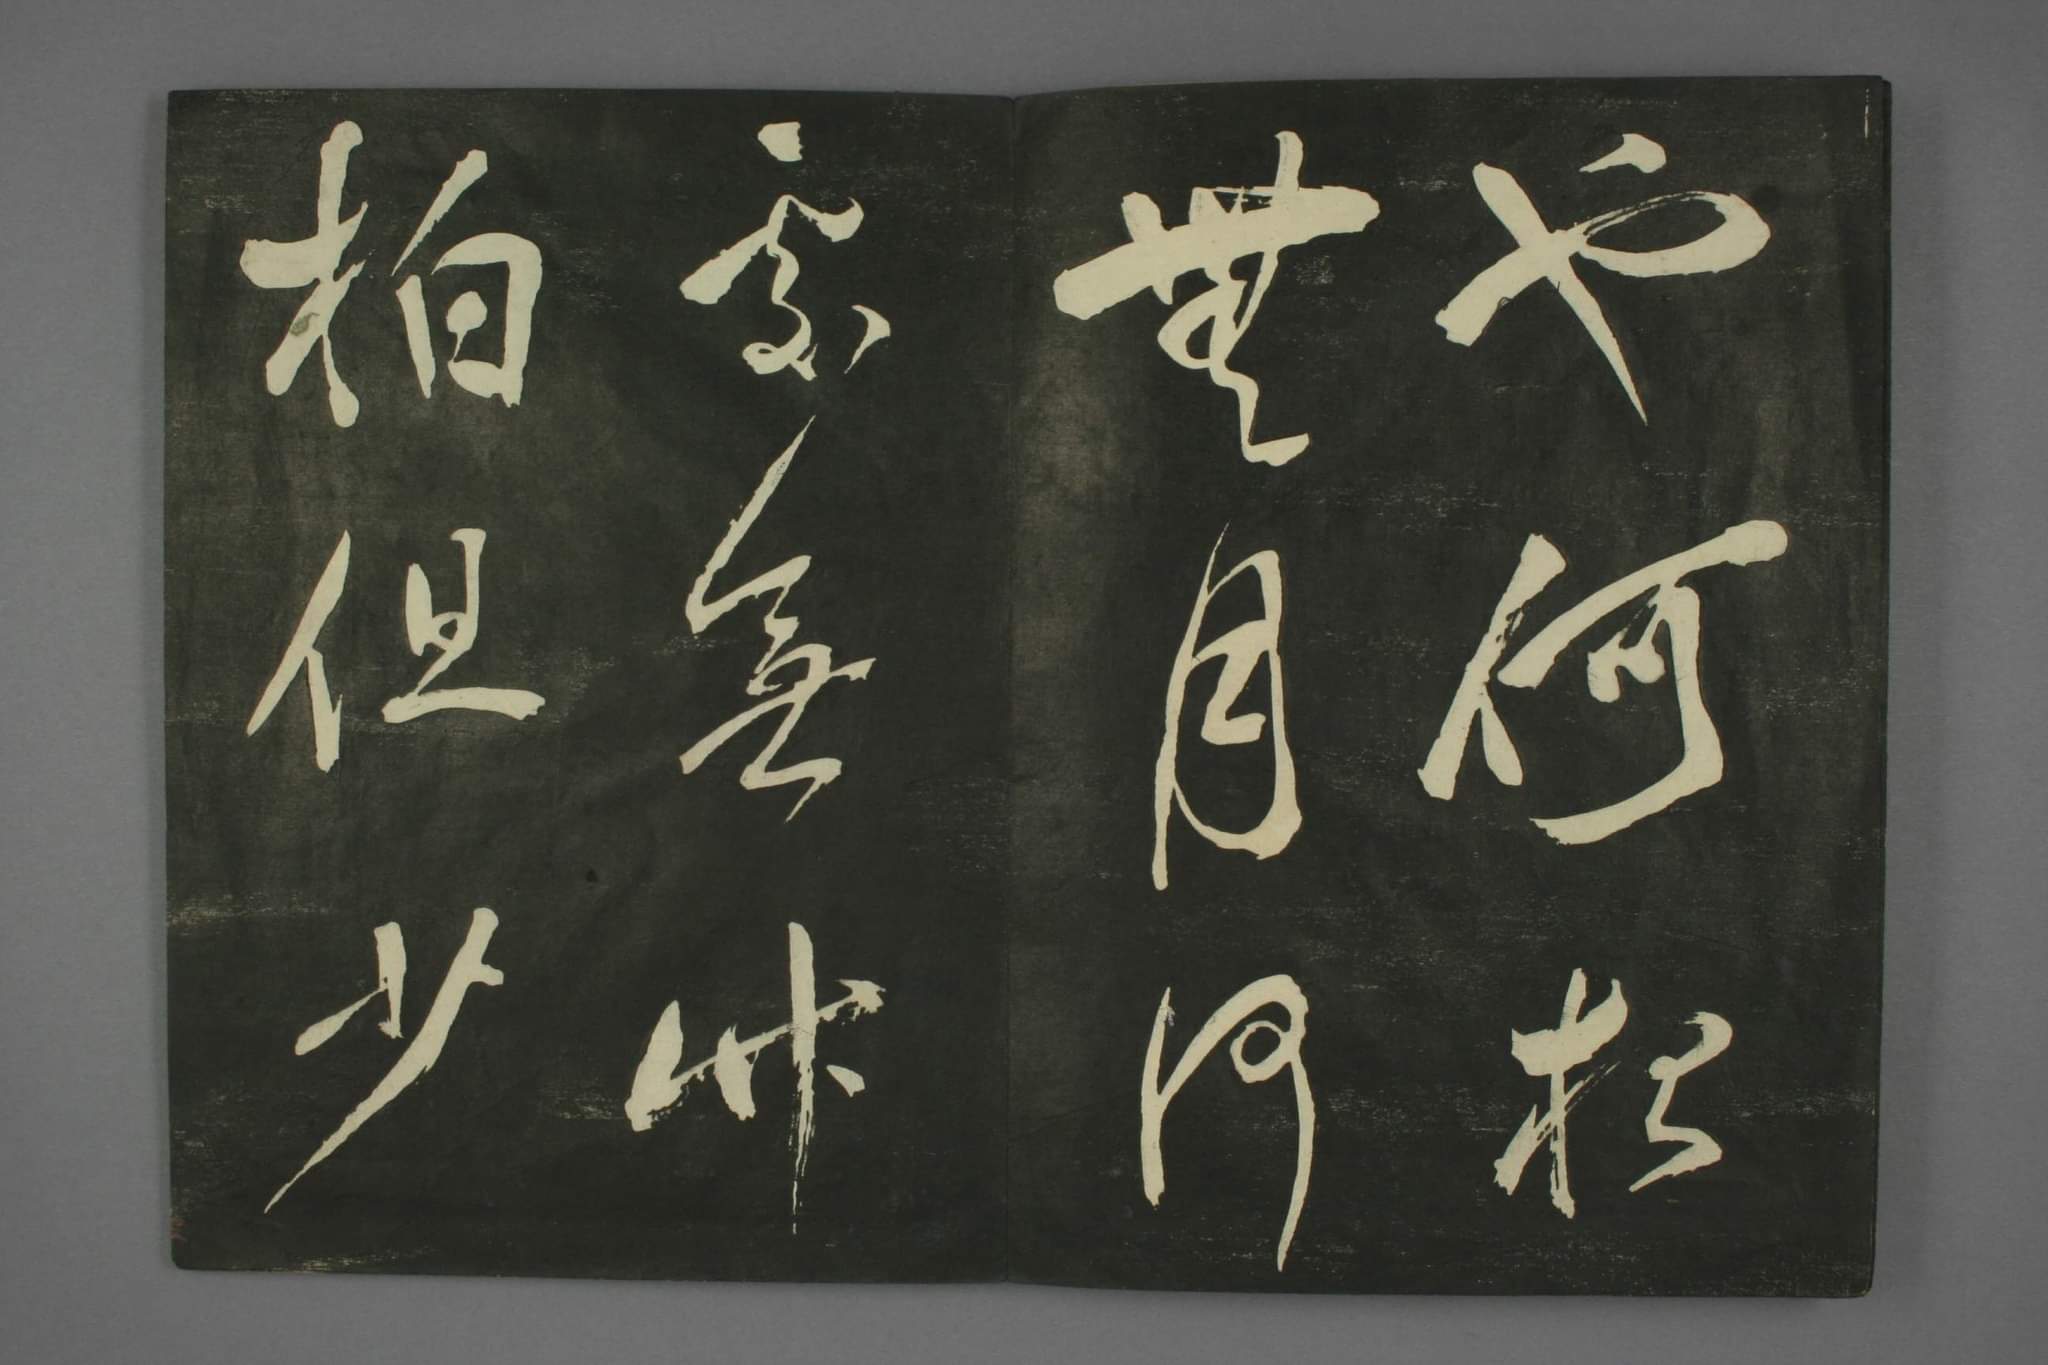 也何夜
無月何
處無竹
柏但少